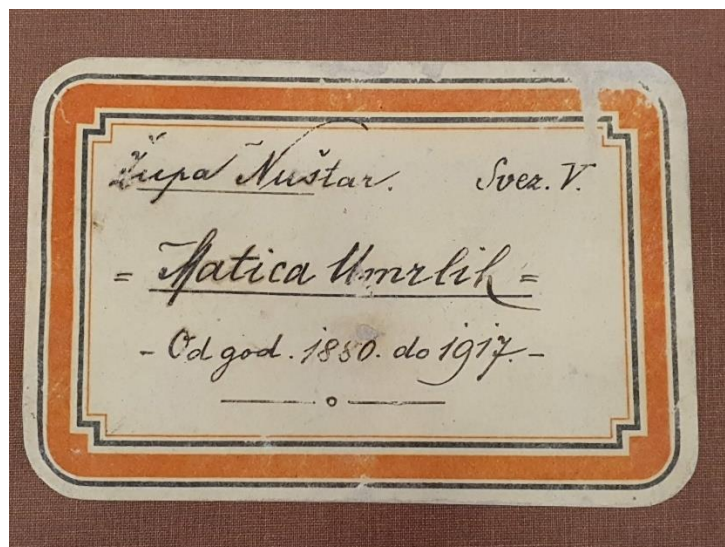 Župa Nuštar. Svez. V.
= Matica Umrlih =
- Od god. 1880. do 1917. -